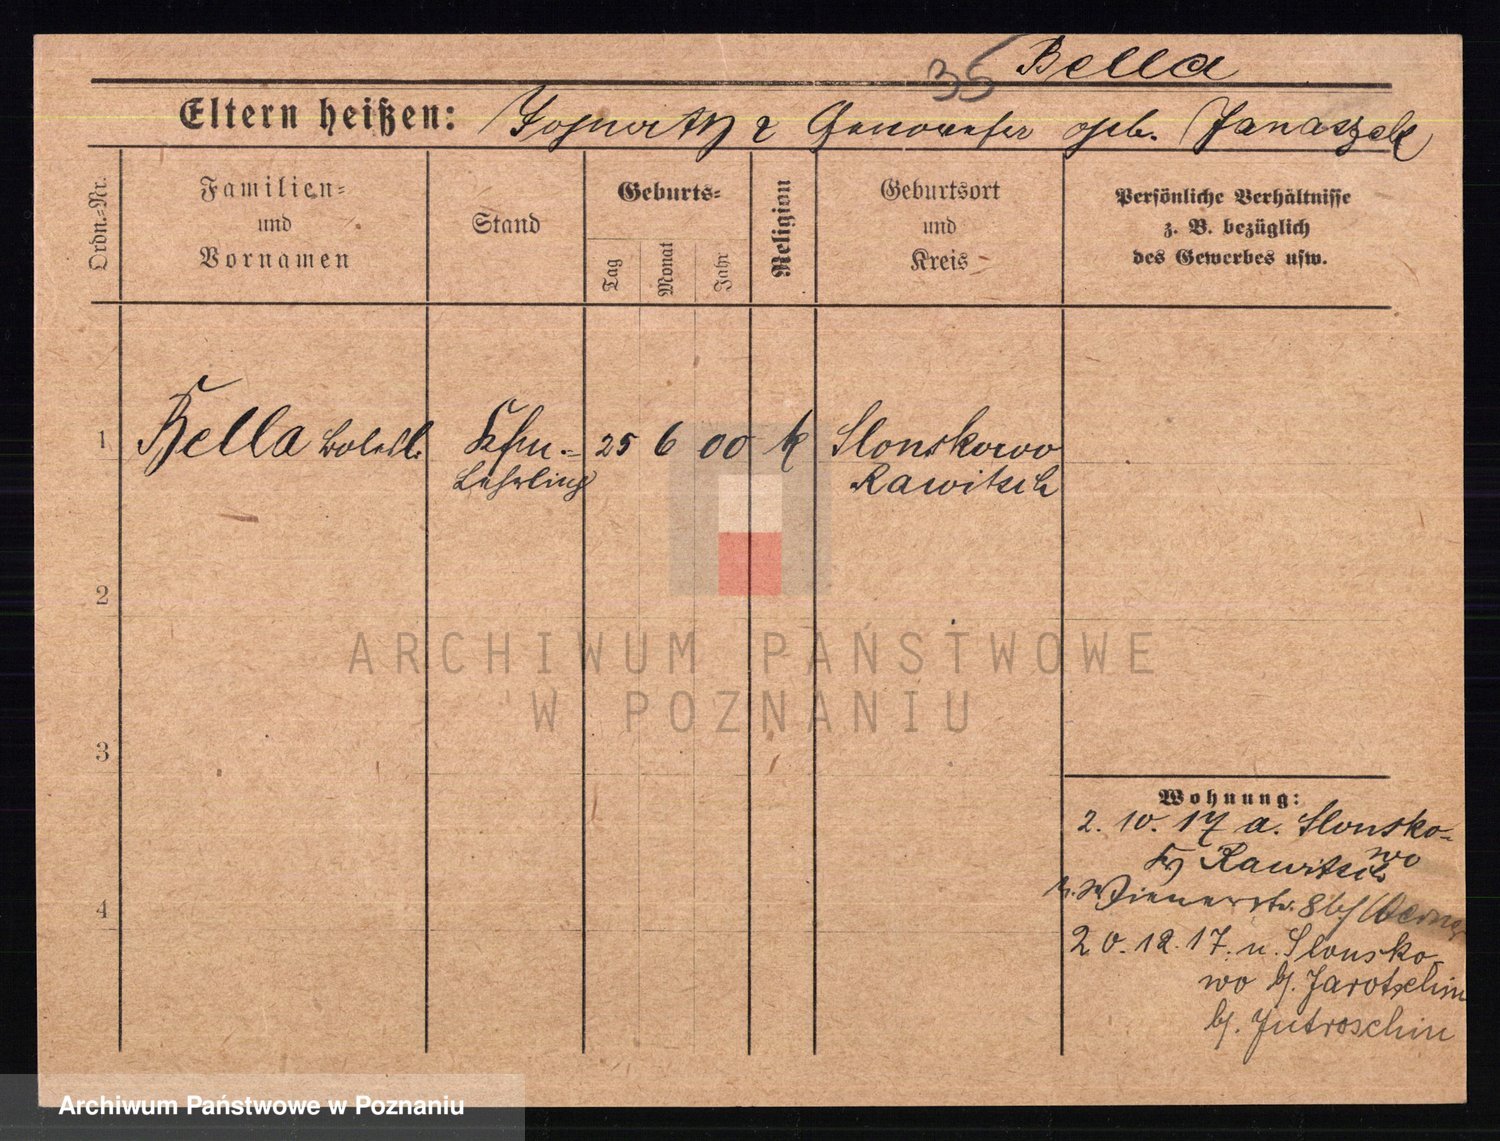 35 Bella
Eltern heißen: & Genowefa geb. Janaszek
Ordn.-Nr.
Familien-
und
Vornamen
Stand
Geburts-
Tag
Monat
Jahr
Religion
Geburtsort
und
Kreis
Persönliche Verhältnisse
z. B. bezüglich
des Gewerbes usw.
1 Bella Kfm.- 25 6 00 k Slonskowo
Lehrling Rawitsch
2
3
4
Wohnung:
2. 10. 17 a. Slonsko-
wo
Rawitsch
Wienerstr. 8 b/
20. 12. 17. n. Slonsko-
wo b/. Jarotschin
b/. Jutroschin
ARCHIWUM PAŃSTWOWE
W POZNANIU
Archiwum Państwowe w Poznaniu